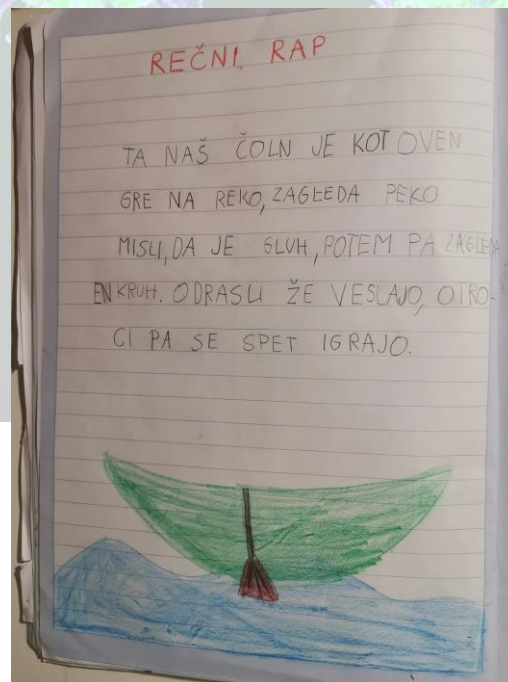 REČNI RAP
TA NAŠ ČOLN JE KOT OVEN
GRE NA REKO, ZAGLEDA PEKO
MISLI, DA JE GLUH, POTEM PA ZAGLEDA
EN KRUH. ODRASLI ŽE VESLAJO, OTRO-
CI PA SE SPET IGRAJO.